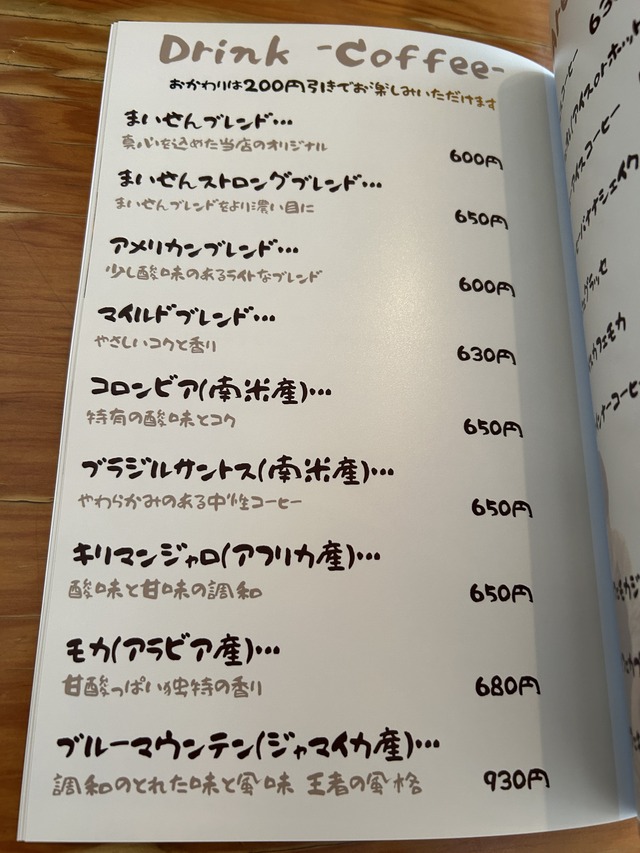 Drink -Coffee-
おかわりは200円引きでお楽しみいただけます
まいせんブレンド…
真心を込めた当店のオリジナル
600円
まいせんストロングブレンド…
まいせんブレンドをより濃い目に
650円
アメリカンブレンド…
少し酸味のあるライトなブレンド
600円
マイルドブレンド…
やさしいコクと香り
630円
コロンビア(南米産)…
特有の酸味とコク
650円
ブラジルサントス(南米産)…
やわらかみのある中性コーヒー
650円
キリマンジャロ(アフリカ産)…
酸味と甘味の調和
650円
モカ(アラビア産)…
甘酸っぱい独特の香り
680円
ブルーマウンテン(ジャマイカ産)…
調和のとれた味と風味 王者の風格
930円
アイスコーヒー
バナナシェイク
カフェモカ